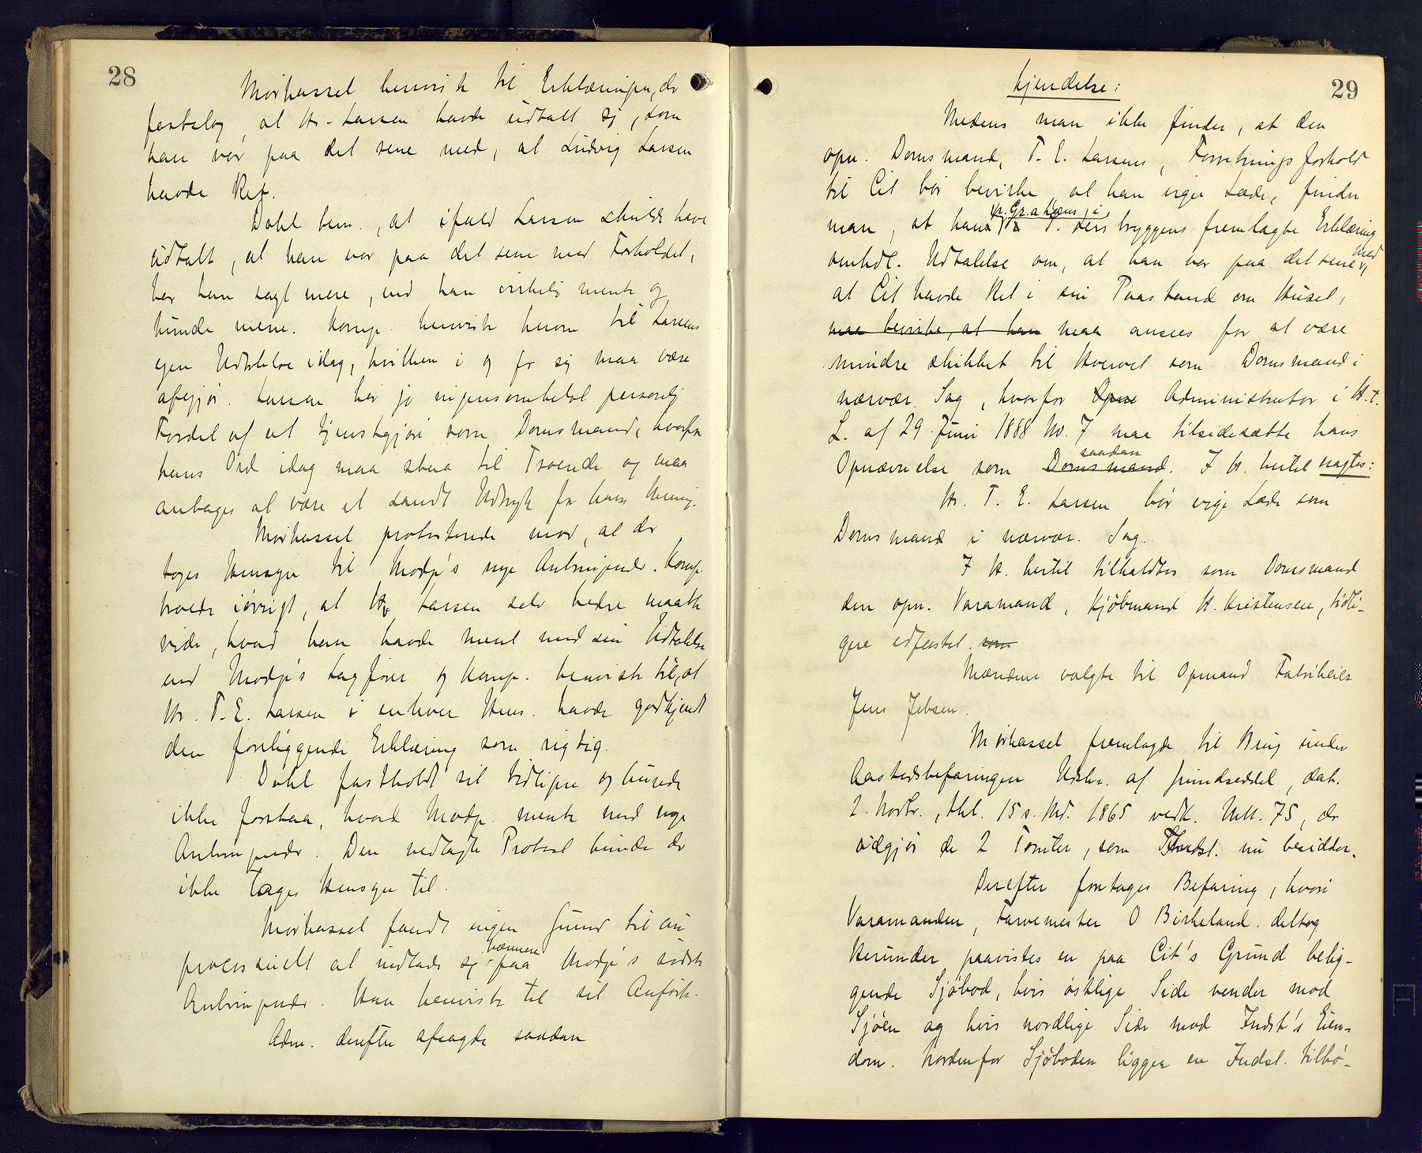 28
Morkassel henviste til Erklæringen, der
forbeløg, at Hr. Larsen havde udtalt sig, som
han var paa det rene med, at Ludvig Larsen
havde Ret.
Dahl bem., at ifald Larsen skulde have
udtalt, at han var paa det rene med Forholdet,
har han sagt mere, end han virkelig mente og
kunde mene. Komp. henviste herom til Larsens
egen Udtalelse idag, hvilken i og for sig maa være
afgjør. Larsen har jo ingensomhelst personlig
Fordel af at tjenstgjøre som Domsmand, hvorfor
hans Ord idag maa staa til Troende og maa
antages at være et sandt Udtryk for hans Mening.
Morkassel protesterede mod, at der
toges Hensyn til Modp's nye Anbringender. Komp.
troede iøvrigt, at Hr. Larsen selv bedre maatte
vide, hvad han havde ment med sin Udtalelse
end Modp's Sagfører og Komp. henviste til, at
Hr. T. E. Larsen i enhver Hens. havde godkjendt
den foreliggende Erklæring som rigtig.
Dahl fastholdt sit tidligere og kunde
ikke forstaa, hvad Modp. mente med nye
Anbringender. Den nedlagte Protest kunde der
ikke tages Hensyn til.
Morkassel fandt ingen Grund til nu
processuelt at indlade sig nærmere paa Modp's sidste
Anbringender. Han henviste til sit Anførte.
Adm. derefter afsagde saadan
29
Kjendelse:
Medens man ikke finder, at den
opn. Domsmand, T. E. Larsens, Forretningsforhold
til Cit bør bevirke, at han viger Sæde, finder
man, at hans, i T. Leirbryggens fremlagte Erklæring
omhdl. Udtalelse om, at han var paa det rene med,
at Cit havde Ret i sin Paastand om Huset,
maa bevirke, at han maa ansees for at være
mindre skikket til Hvervet som Domsmand i
nærvær. Sag, hvorfor Opne Administrator i H. t.
L. af 29. Juni 1888 No. 7 maa tilsidesætte hans
Opnævnelse som Domsmand saadan. I H. hertil eragtes:
Hr. T. E. Larsen bør vige Sæde som
Domsmand i nærvær. Sag.
I H. hertil tilkaldtes som Domsmand
den opn. Varamand, Kjøbmand H. Kristensen, tidli-
gere edfæstet. som
Mændene valgte til Opmand Fabrikeier
Jens Jebsen.
Morkassel fremlagde til Brug under
Aastedsbefaringen Udskr. af Grundseddel, dat.
2. Novbr., thl. 15 s. Md. 1865 vedk. M.N. 75, der
udgjør de 2 Tomter, som Indst. nu besidder.
Derefter foretoges Befaring, hvori
Varamanden, Farvemester O Birkeland. deltog
Herunder paavistes en paa Cit's Grund belig-
gende Sjøbod, hvis østlige Side vender mod
Sjøen og hvis nordlige Side mod Indst's Eien-
dom. Nordenfor Sjøboden ligger en Indst. tilhø-